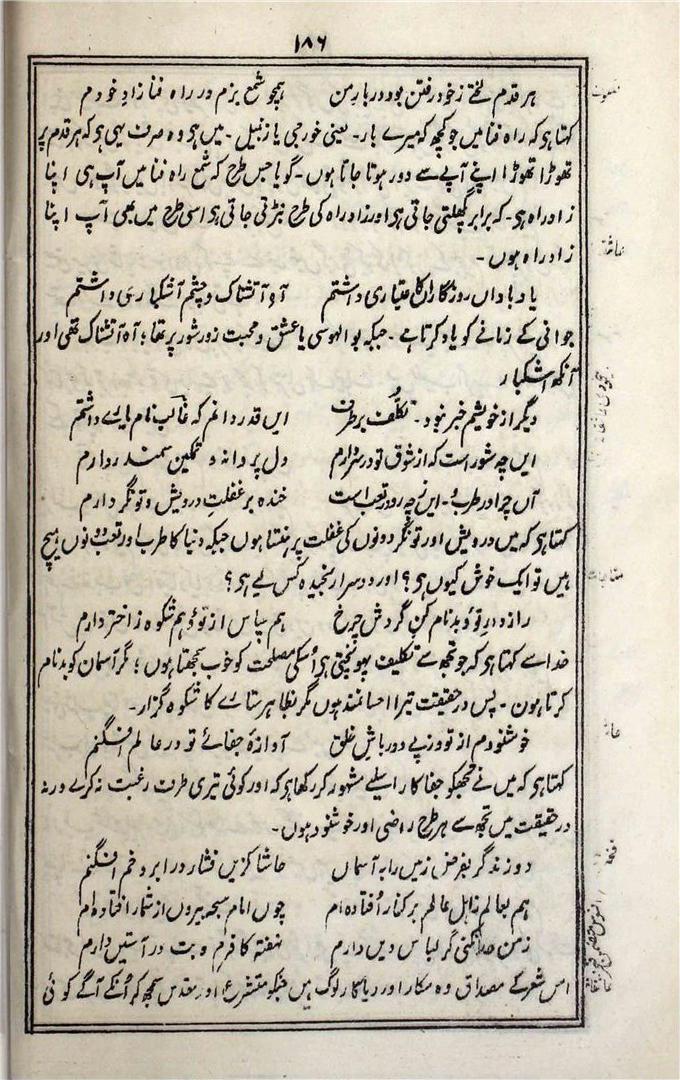 ۱۸۶
ہر قدم لختے ز خود رفتن بود در بارِ من ہمچو شمع بزم در راہ فنا زادِ خودم
کہتا ہو کہ راہ فنا میں جو کچھ کہ میرے بار۔ یعنی خورجی یا زنبیل۔ میں ہو وہ صرف یہی ہو کہ ہر قدم پر
تھوڑا تھوڑا اپنے آپے سے دور ہوتا جاتا ہوں۔ گویا جس طرح کہ شمع راہ فنا میں آپ ہی اپنا
زادراہ ہو۔ کہ برابر گھلتی جاتی ہو اور زادراہ کی طرح نبڑتی جاتی ہو اسی طرح میں بھی آپ اپنا
زادراہ ہوں۔
یاد باداں روزگاراں کاعتباری داشتم آہِ آتشناک و چشم اشکباری داشتم
جوانی کے زمانے کو یاد کرتا ہے۔ جبکہ بوالہوسی یا عشق و محبت زور شور پر تھا؛ آہ آتشناک تھی اور
آنکھ اشکبار
دیگر از خویشم خبر نبود۔ تکلّف برطرف ایں قدر دانم کہ غالب نام یارے داشتم
ایں چہ شور است کہ از شوق تو در سر دارم دل پروانہ و تمکین سمندر دارم
آں چرا در طرب و۔ این زچہ رو در تعب است خندہ بر غفلتِ درویش و تونگر دارم
کہتا ہو کہ میں درویش اور تونگر دونوں کی غفلت پر ہنستا ہوں جبکہ دنیا کا طرب اور تعب دونوں ہیچ
ہیں تو ایک خوش کیوں ہو؟ اور دوسرا رنجیدہ کس لیے ہو؟
رازدارِ تو و بدنام کنِ گردش چرخ ہم سپاس از تو و ہم شکوہ ز اختر دارم
خدا سے کہتا ہو کہ جو تجھے تکلیف پہونچتی ہو اُسکی مصلحت کو خوب سمجھتا ہوں؛ مگر آسمان کو بدنام
کرتا ہون۔ پس درحقیقت تیرا احسانمند ہوں مگر بظاہر ستارے کا شکوہ گزار۔
خوشنودم از تو و ز پے دورباش خلق آوازۂ جفائے تو در عالم افگنم
کہتا ہو کہ میں نے تجھکو جفاکار اسلیے مشہور کر رکھا ہو کہ اور کوئی تیری طرف رغبت نہ کرے ورنہ
درحقیقت میں تجھ سے ہر طرح راضی اور خوشنود ہوں۔
دوزند گر بفرض زمیں را بہ آسماں حاشا کزیں فشار در ابرو خم افگنم
ہم بعالم ز اہل عالم بر کنار اُفتادہ ام چوں امام سبحہ بیروں از شمار افتادہ ام
زمن حذر نکنی گر لباس دیں دارم نہفتہ کافرم و بت در آستیں دارم
اس شعر کے مصداق وہ مکار اور ریاکار لوگ ہیں جنکو متشرع اور مقدس سمجھ کر اُنکے آگے کوئی